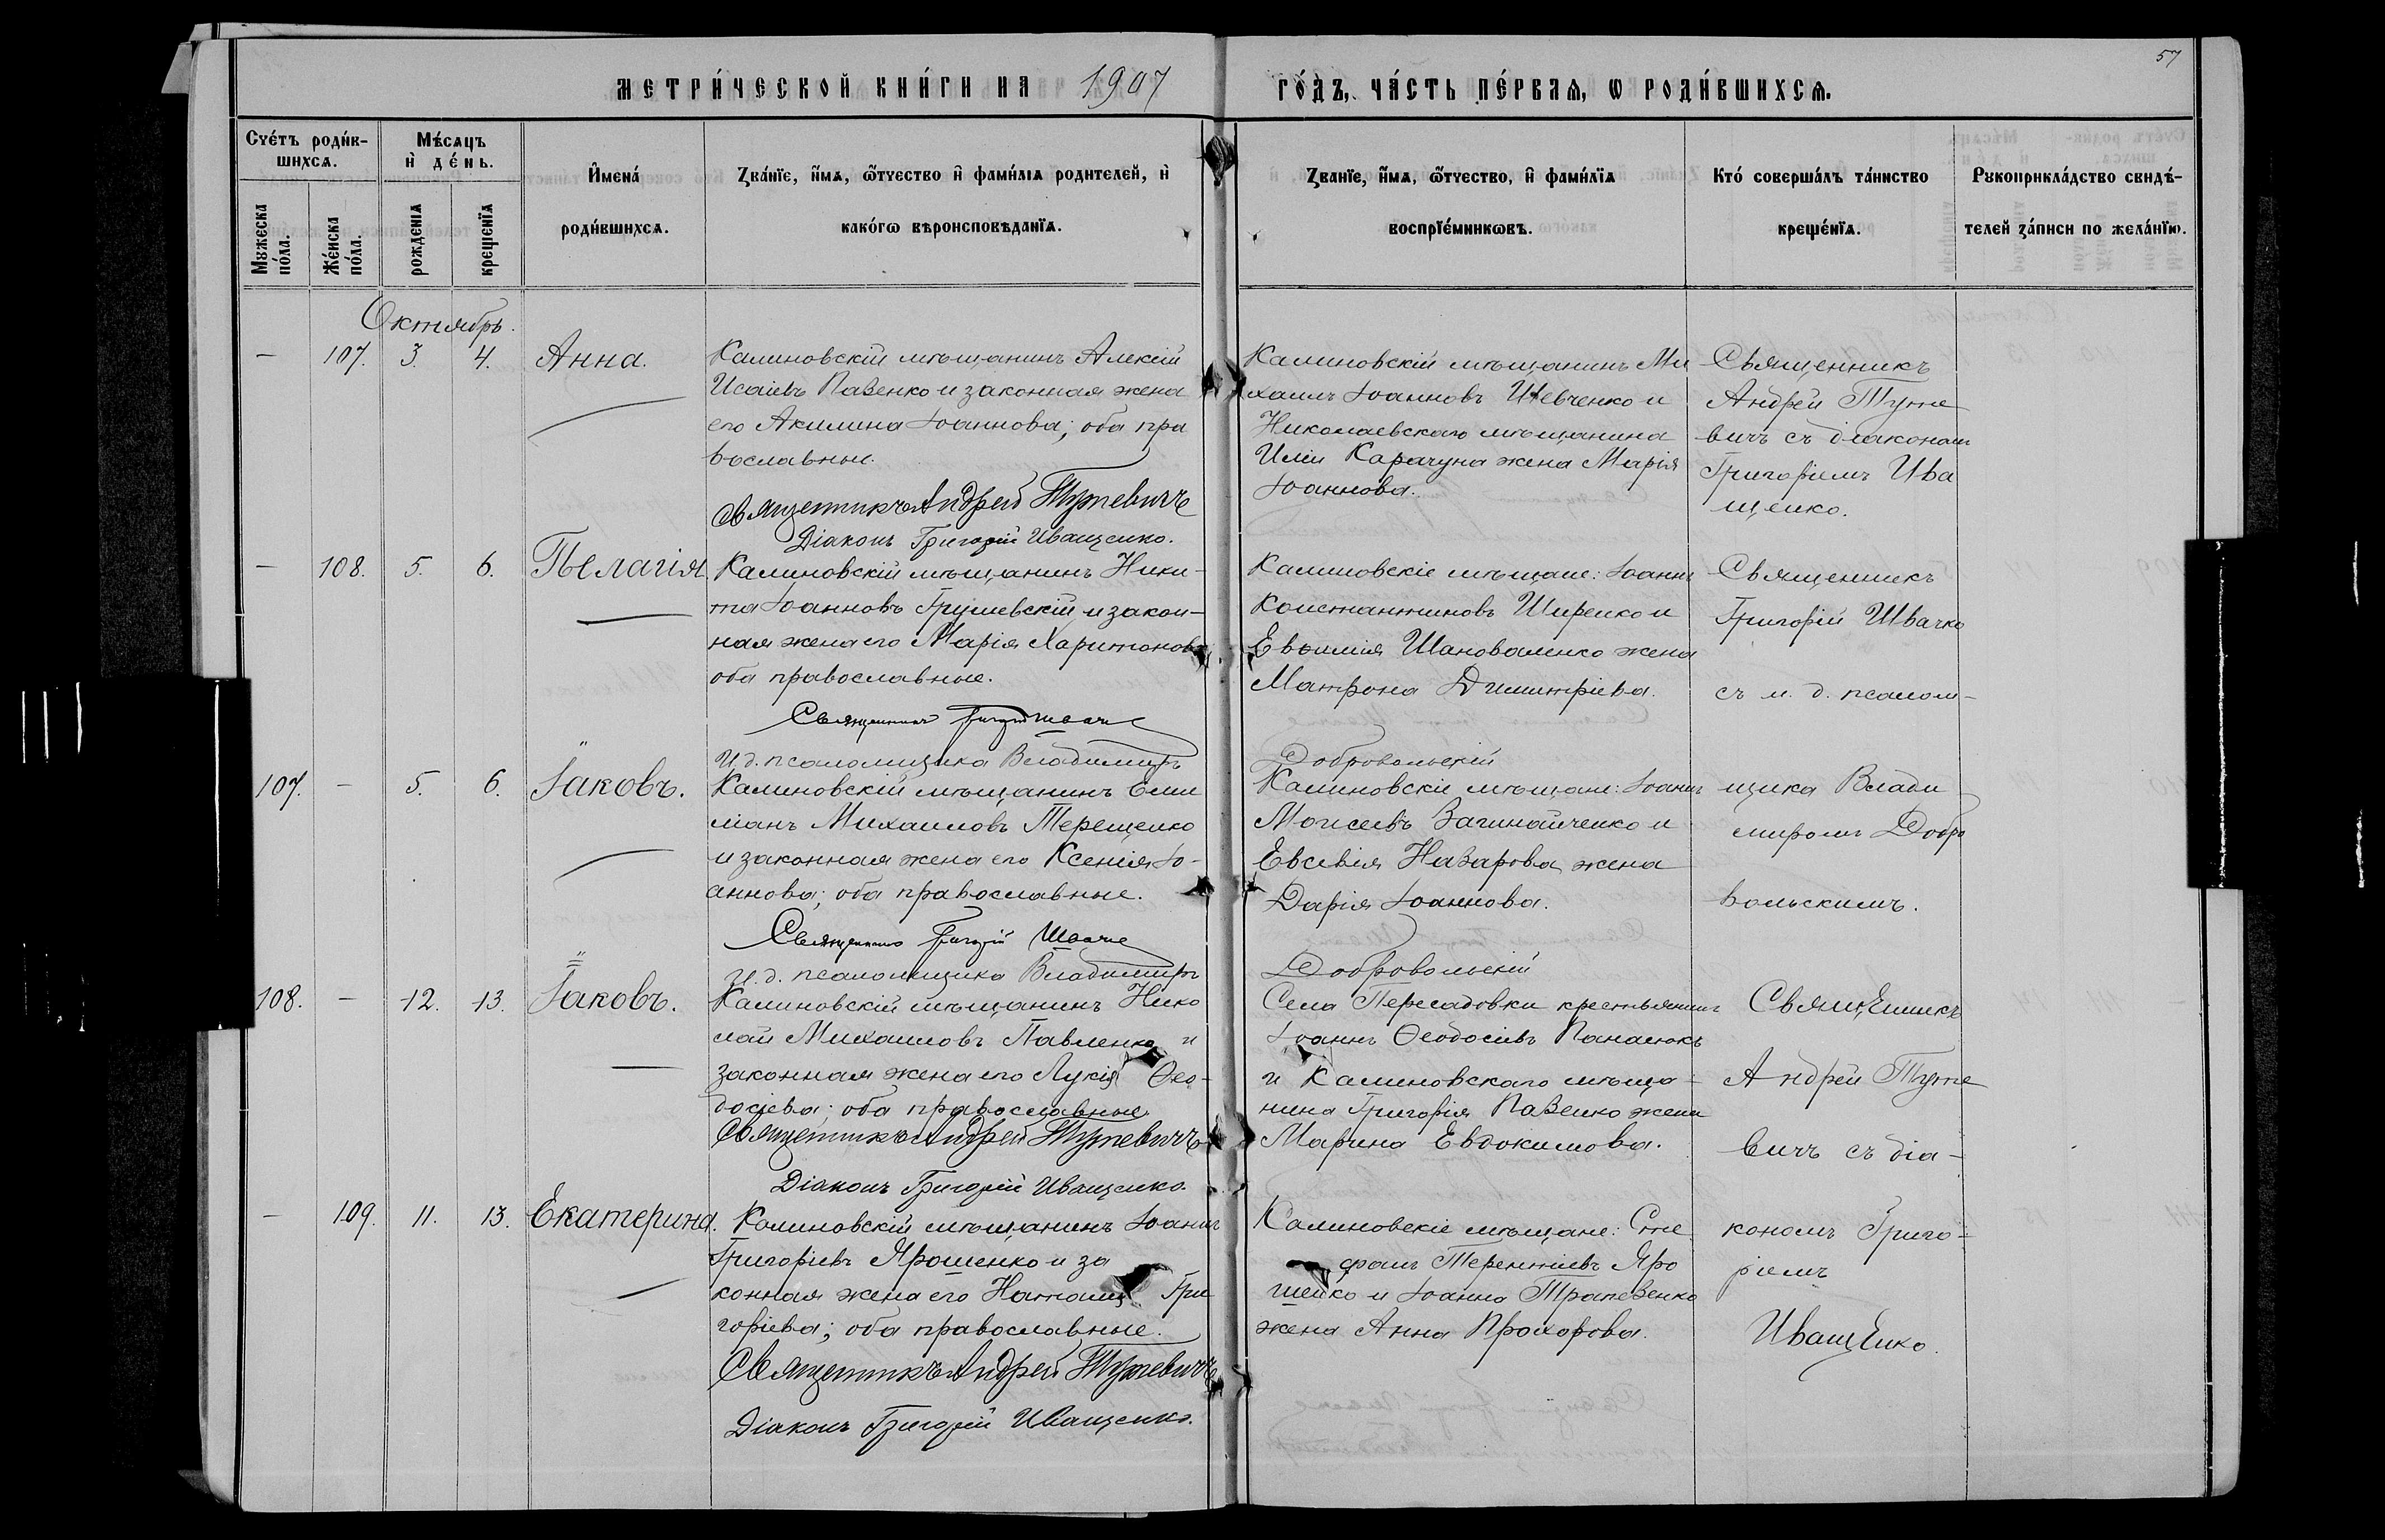 57
МЕТРИ́ЧЕСКОЙ КНИ́ГИ НА 1907 ГО́ДЪ, ЧА́СТЬ ПЕ́РВАѦ, Ѡ РОДИ́ВШИХСѦ.
Счетъ роди́вшихсѧ.
Мꙋжеска по́ла.
Же́нска по́ла.
Мѣ́сѧцъ и҆ де́нь.
рожденїѧ
крещенїѧ
И҆мена́
роди́вшихсѧ.
Ꙁва́нїе, и҆́мѧ, ѻ҆́тчество и҆ фами́лїѧ родителей, и҆
како́гѡ вѣроисповѣданїѧ.
Ꙁванїе, и҆́мѧ, ѻ҆́тчество, и҆ фами́лїѧ
воспрїе́мникѡвъ.
Кто́ соверша́лъ та́инство
креще́нїѧ.
Рꙋкоприкла́дство свидѣ́-
телей ꙁа́писи по жела́нїю.
Октябрь.
— 107. 3. 4. Анна.
Калиновскій мѣщанинъ Алексій
Исаіевъ Павенко и законная жена
его Акилина Іоаннова; оба пра
вославные.
Священникъ Андрей Тужевичъ
Діаконъ Григорій Иващенко.
Калиновскій мѣщанинъ Ми
хаилъ Іоанновъ Шевченко и
Николаевскаго мѣщанина
Иліи Карачуна жена Марія
Іоаннова.
Священникъ
Андрей Туже
вичъ съ діакономъ
Григоріемъ Ива
щенко.
— 108. 5. 6. Пелагія.
Калиновскій мѣщанинъ Ники-
та Іоанновъ Грушевскій и закон-
ная жена его Марія Харитонова
оба православные.
Священникъ Григорій Швачко
И.д. псаломщика Владимиръ Добровольскій
Калиновскіе мѣщане: Іоаннъ
Константиновъ Ширенко и
Евѳимія Шаповаленко жена
Матрона Димитріева.
Священникъ
Григорій Швачко
съ и. д. псалом-
107. — 5. 6. Іаковъ.
Калиновскій мѣщанинъ Еми
ліанъ Михаиловъ Терещенко
и законная жена его Ксенія Іо-
аннова; оба православные.
Священникъ Григорій Швачко
И.д. псаломщика Владимиръ Добровольскій
Калиновскіе мѣщане: Іоаннъ
Моисеевъ Вагинайченко и
Евсевія Назарова жена
Дарія Іоаннова.
щика Влади
миромъ Добро
вольскимъ.
108. — 12. 13. Іаковъ.
Калиновскій мѣщанинъ Нико
лай Михаиловъ Павленко и
законная жена его Лукія Ѳео-
досіева; оба православные
Священникъ Андрей Тужевичъ
Діаконъ Григорій Иващенко.
Села Пересадовки крестьянинъ
Іоаннъ Ѳеодосіевъ Панасюкъ
и Калиновскаго мѣща-
нина Григорія Павенко жена
Марина Евдокимова.
Священникъ
Андрей Туже
вичъ съ діа-
— 109. 11. 13. Екатерина.
Калиновскій мѣщанинъ Іоаннъ
Григоріевъ Ярошенко и за
конная жена его Наталія Гри
горіева; оба православные.
Священникъ Андрей Тужевичъ
Діаконъ Григорій Иващенко.
Калиновскіе мѣщане: Сте
фанъ Терентіевъ Яро
шенко и Іоанна Трапезенко
жена Анна Прохорова.
кономъ Григо-
ріемъ
Иващенко.